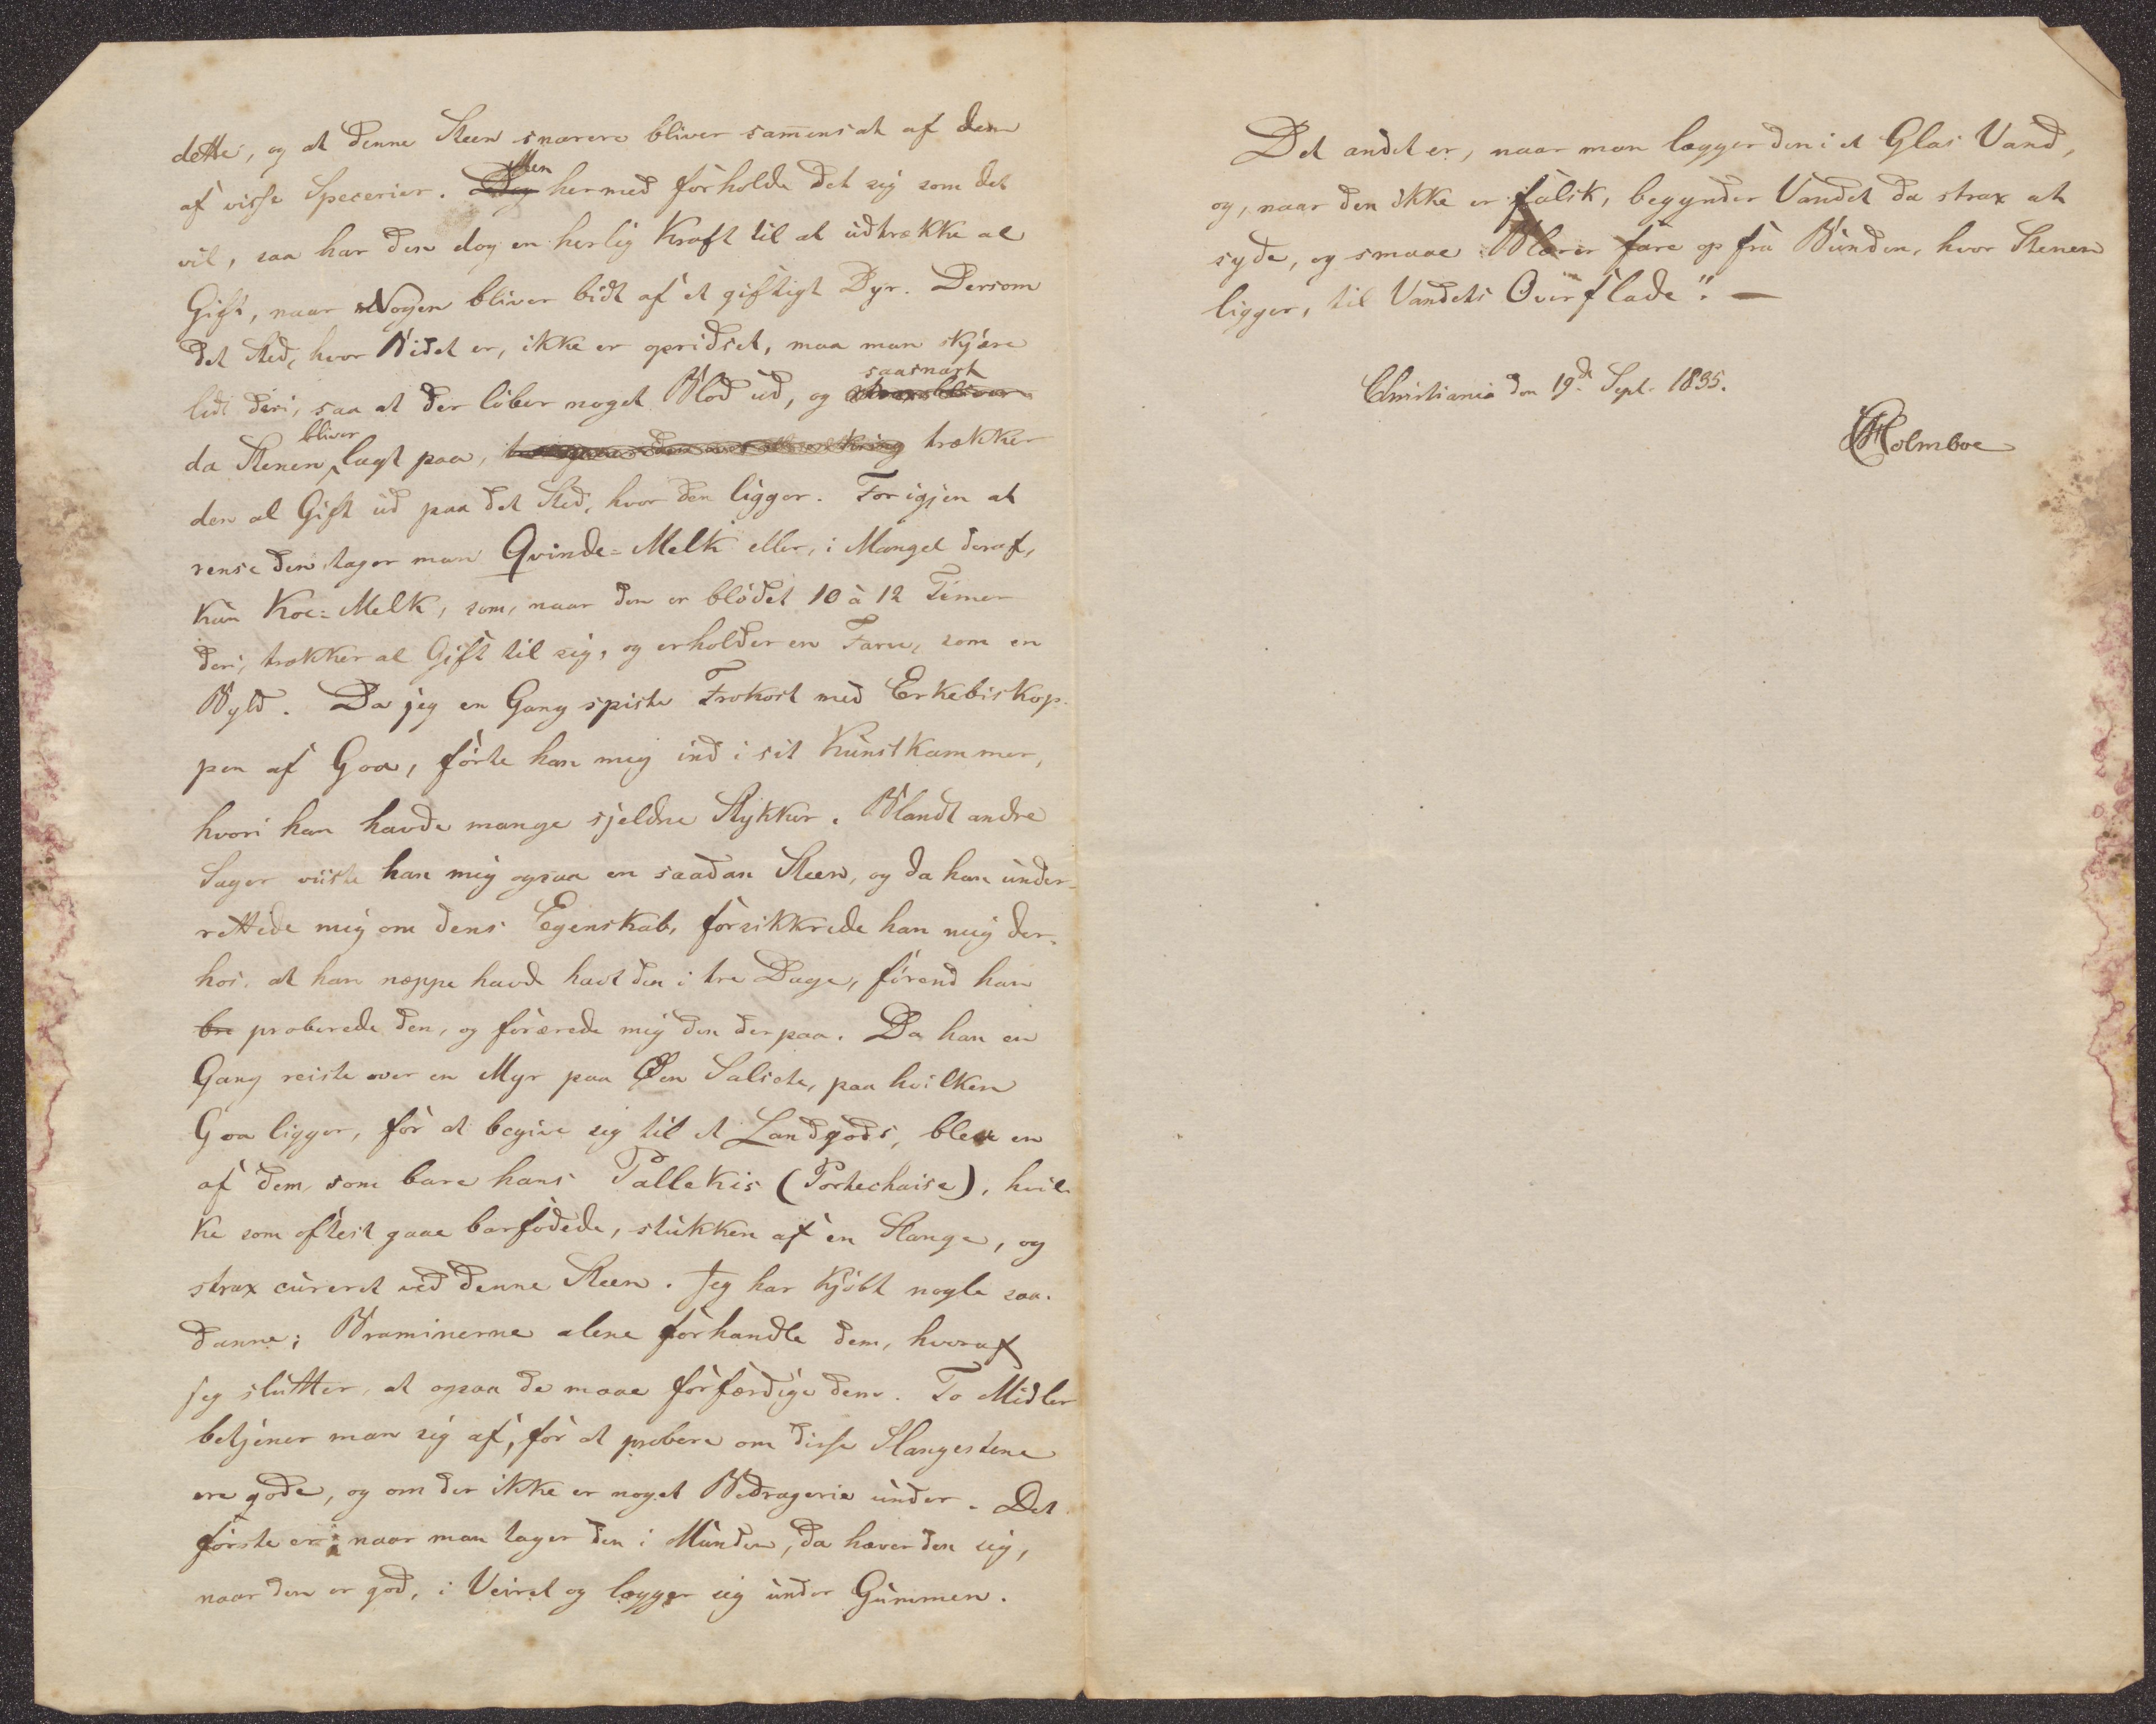 dette, og at denne Steen snarere bliver sam̅ensat af dem
af visse Specerier. Dog Men hermed forholde det sig som det
vil, saa har den dog en herlig Kraft til at udtrække al
Gift, naar Nogen bliver bidt af et giftigt Dyr. Dersom
det Sted, hvor Bidet er, ikke er opridset, maa man skjære
lidt deri, saa at der löber noget Blod ud, og saasnart
da Stenen bliver lagt paa, trækker
den al Gift ud paa det Sted, hvor den ligger. For igjen at
rense den tager man Qvinde-Melk eller, i Mangel deraf,
kun Koe-Melk, som, naar den er blödet 10 à 12 Timer
deri, trækker al Gift til sig, og erholder en Farve, som en
Byld. Da jeg en Gang spiste Frokost med Erkebiskop-
pen af Goa, förte han mig ind i sit Kunstkammer,
hvori han havde mange sjeldne Stykker. Blandt andre
Sager viiste han mig ogsaa en saadan Steen, og da han under-
rettede mig om dens Egenskab, forsikkrede han mig der-
hos, at han neppe havde havt den i tre Dage, förend han
bre proberede den, og forærede mig den derpaa. Da han en
Gang reiste over en Myr paa Öen Salsete, paa hvilken
Goa ligger, for at begive sig til et Landgods, blev en
af dem, som bare hans Pallekis (Portechaise), hvil-
ke som oftest gaae barfodede, stukken af en Slange, og
strax cureret ved denne Steen. Jeg har kjöbt nogle saa-
danne; Braminerne alene forhandle dem, hvoraf
jeg slutter, at ogsaa de maae forfærdige dem. To Midler
betjener man sig af, for at probere om disse Slangestene
ere gode, og om der ikke er noget Bedragerie under. Det
förste er: naar man tager den i Munden, da hæver den sig,
naar den er god, i Veiret og lægger sig under Gummen.
Det andet er, naar man lægger den i et Glas Vand,
og, naar den ikke er falsk, begynder Vandet da strax at
syde, og smaae Blærer fare op fra Bunden, hvor Stenen
ligger, til Vandets Overflade". —
Christiania den 19de Sept. 1835.
Holmboe